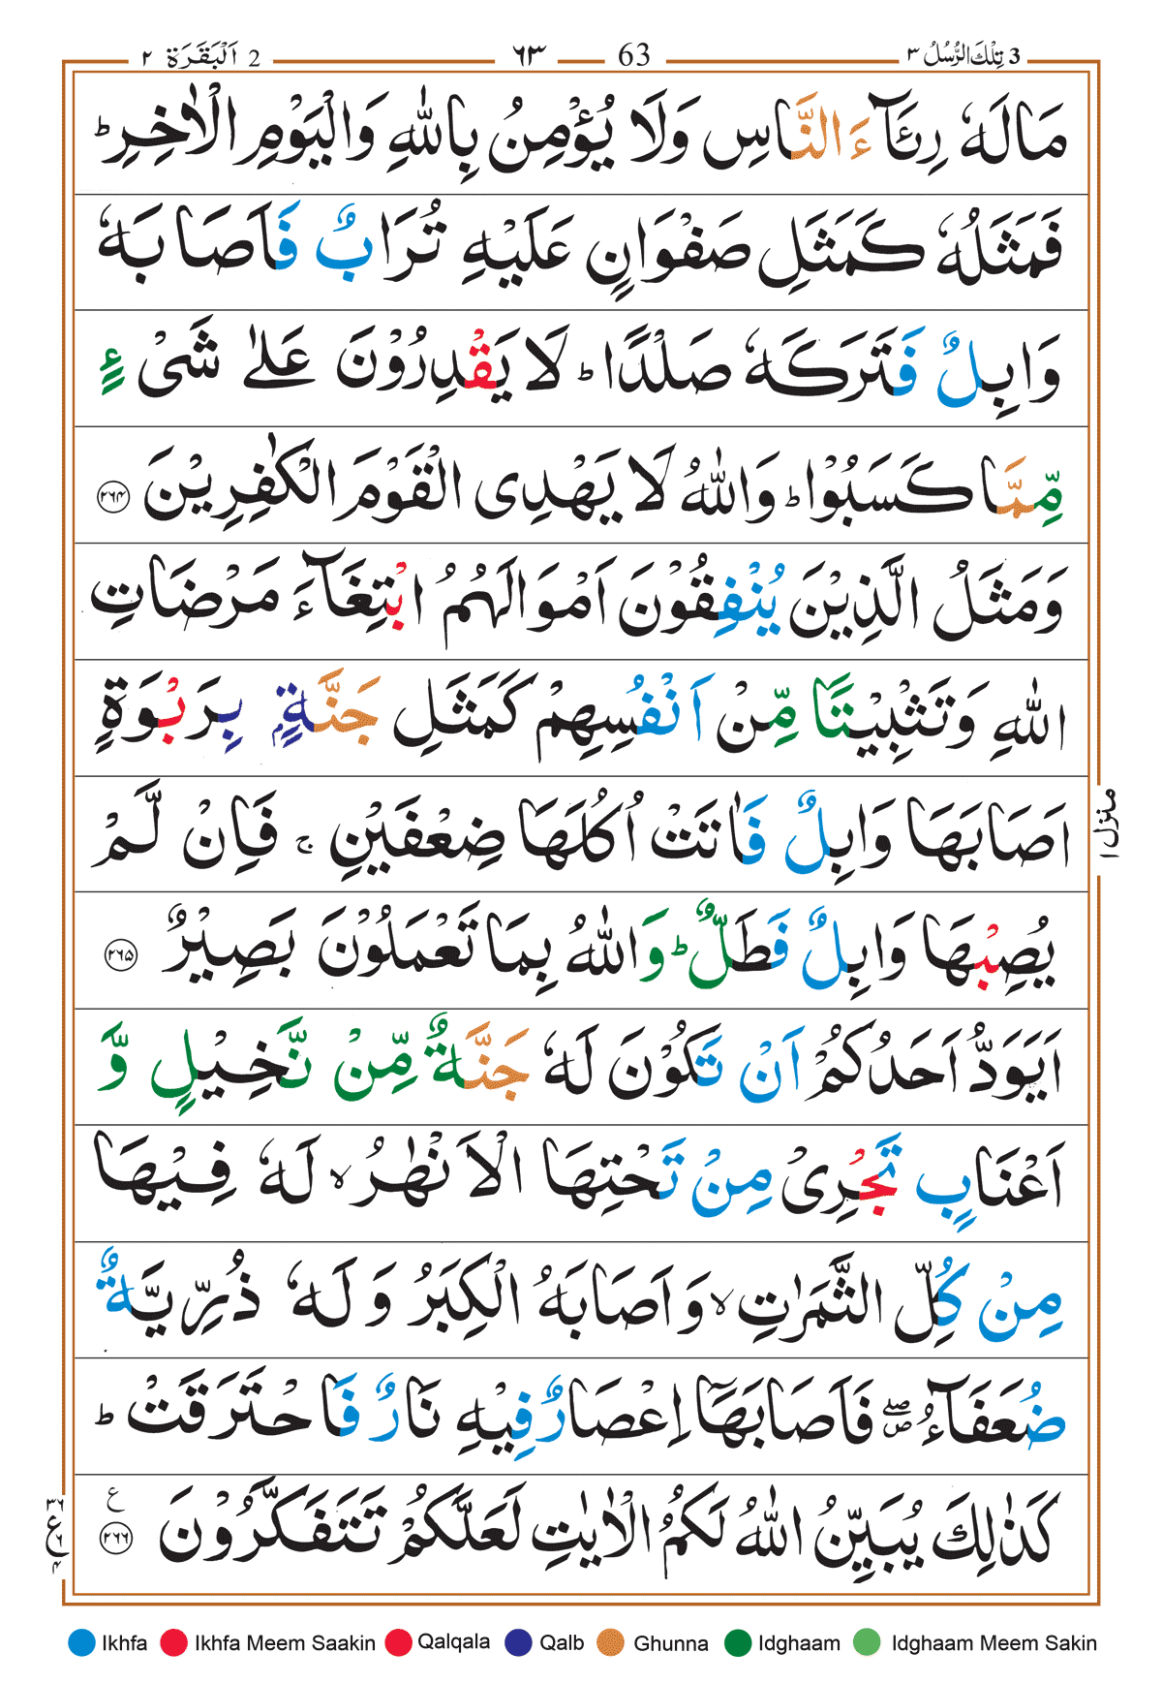 3 تِلْكَ الرُّسُلُ ٣ 63 ٦٣ 2 اَلْبَقَرَة ٢
مَالَهٗ رِئَآءَ النَّاسِ وَلَا يُؤْمِنُ بِاللّٰهِ وَالْيَوْمِ الْاٰخِرِ ؕ
فَمَثَلُهٗ كَمَثَلِ صَفْوَانٍ عَلَيْهِ تُرَابٌ فَاَصَابَهٗ
وَابِلٌ فَتَرَكَهٗ صَلْدًا ؕ لَا يَقْدِرُوْنَ عَلٰى شَىْءٍ
مِّمَّا كَسَبُوْا ؕ وَاللّٰهُ لَا يَهْدِى الْقَوْمَ الْكٰفِرِيْنَ ۝۲۶۴
وَمَثَلُ الَّذِيْنَ يُنْفِقُوْنَ اَمْوَالَهُمُ ابْتِغَآءَ مَرْضَاتِ
اللّٰهِ وَتَثْبِيْتًا مِّنْ اَنْفُسِهِمْ كَمَثَلِ جَنَّةٍۭ بِرَبْوَةٍ
اَصَابَهَا وَابِلٌ فَاٰتَتْ اُكُلَهَا ضِعْفَيْنِ ۚ فَاِنْ لَّمْ
يُصِبْهَا وَابِلٌ فَطَلٌّ ؕ وَاللّٰهُ بِمَا تَعْمَلُوْنَ بَصِيْرٌ ۝۲۶۵
اَيَوَدُّ اَحَدُكُمْ اَنْ تَكُوْنَ لَهٗ جَنَّةٌ مِّنْ نَّخِيْلٍ وَّ
اَعْنَابٍ تَجْرِىْ مِنْ تَحْتِهَا الْاَنْهٰرُ ۙ لَهٗ فِيْهَا
مِنْ كُلِّ الثَّمَرٰتِ ۙ وَاَصَابَهُ الْكِبَرُ وَلَهٗ ذُرِّيَّةٌ
ضُعَفَآءُ ۖۚ فَاَصَابَهَاۤ اِعْصَارٌ فِيْهِ نَارٌ فَاحْتَرَقَتْ ؕ
كَذٰلِكَ يُبَيِّنُ اللّٰهُ لَكُمُ الْاٰيٰتِ لَعَلَّكُمْ تَتَفَكَّرُوْنَ ۝۲۶۶ ع
منزل ١
٣٦ ع ٦ ۴
Ikhfa Ikhfa Meem Saakin Qalqala Qalb Ghunna Idghaam Idghaam Meem Sakin